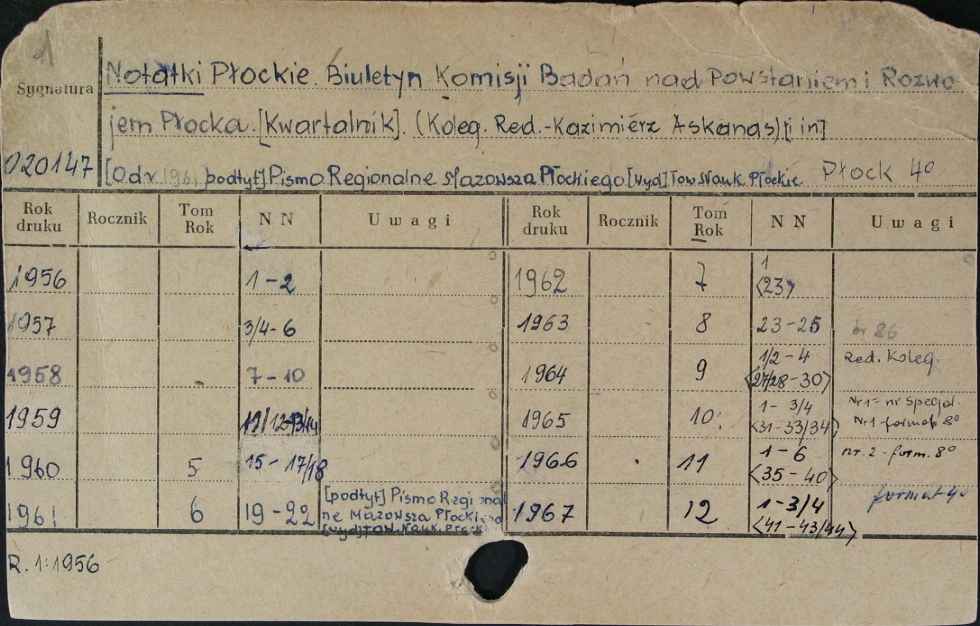 1
Sygnatura
020147
Notatki Płockie. Biuletyn Komisji Badań nad Powstaniem i Rozwo-
jem Płocka. [Kwartalnik]. (Koleg. Red.-Kazimierz Askanas) [i in]
[Od r. 1961 podtyt] Pismo Regionalne Mazowsza Płockiego [wyd] Tow Nauk. Płockie Płock 4o
Rok druku Rocznik Tom Rok NN Uwagi Rok druku Rocznik Tom Rok NN Uwagi
1956 1-2 1962 7 1 <23>
1957 3/4-6 1963 8 23-25 br 26
1958 7-10 1964 9 1/2-4 <27/28-30> Red. Koleg.
1959 11/12-13/14 1965 10. 1-3/4 <31-33/34> Nr 1 = nr specjal. Nr 1 - format 8o
1960 5 15-17/18 1966 11 1-6 <35-40> nr. 2 - form. 8o
1961 6 19-22 [podtyt] Pismo Regional ne Mazowsza Płockiego [wyd] Tow. Nauk. Płock 1967 12 1-3/4 <41-43/44> format 4o
R. 1:1956